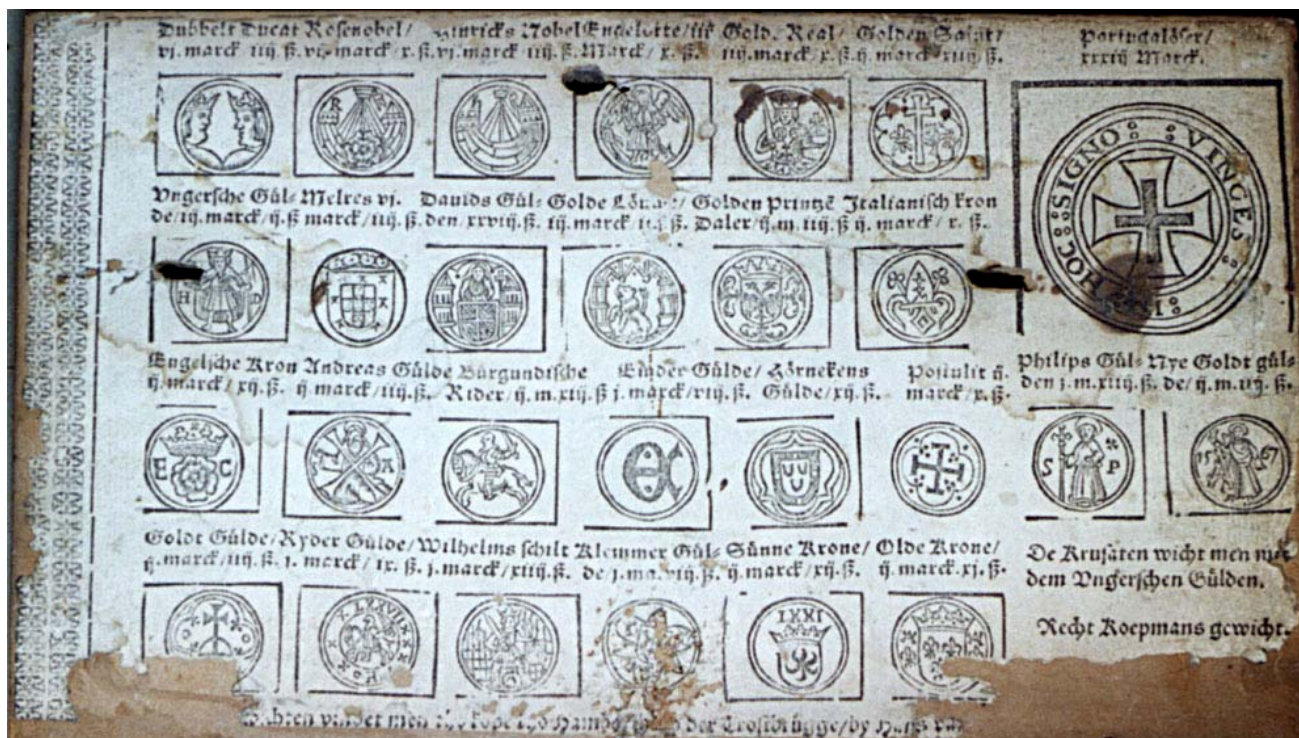 Dubbelt Ducat Rosenobel / Hinricks Nobel Engelotte / iij Gold. Real / Golden Salut /
vj. marck iiij. ß. vj. marck / x. ß. vj. marck iiij. ß. Marck / x. ß. iiij. marck x. ß. ij. marck xiiij ß.
Portugalöser /
xxxiij Marck.
R
IN HOC SIGNO VINCES
Vngersche Gül- Melres vj. Dauids Gül- Golde Löuwe / Golden Printzē Italianisch kron
de / iij. marck / ij. ß marck / iiij. ß. den / xxviij. ß. iij. marck ß. Daler / ij. m. iiij. ß ij. marck / x. ß.
H D
Engelsche Kron Andreas Gülde Burgundische Emder Gülde / Hörnekens Postulit ij.
ij. marck / xij. ß. ij marck / iiij. ß. Rider / ij. m. xiiij. ß j. marck / xiij. ß. Gülde / xij. ß. marck / x. ß.
Philips Gül- Nye Goldt gül-
den j. m. xiiij. ß. de / ij. m. iiij. ß.
E C
A
S P
15 67
Goldt Gülde / Ryder Gülde / Wilhelms schilt Klemmer Gül- Sünne Krone / Olde Krone /
ij. marck / iiij. ß. j. marck / ix. ß. j. marck / xiiij. ß. de j. ma. viij. ß. ij. marck / xij. ß. ij. marck xj. ß.
De Krusaten wicht men mit
dem Vngerschen Gülden.
Recht Koepmans gewicht.
LXXVIII
IXXI
vindet men tho kope tho Hamborch der Trostbrügge / by Hans